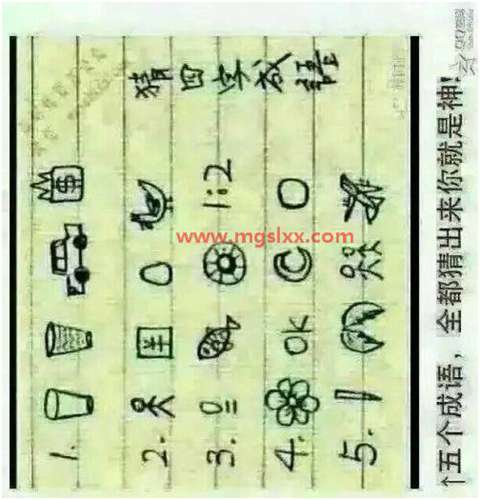 猜四字成語
1. $
2.
3. 1:2
4. OK C O
5.
www.mgslxx.com
↑五个成语，全都猜出来你就是神!